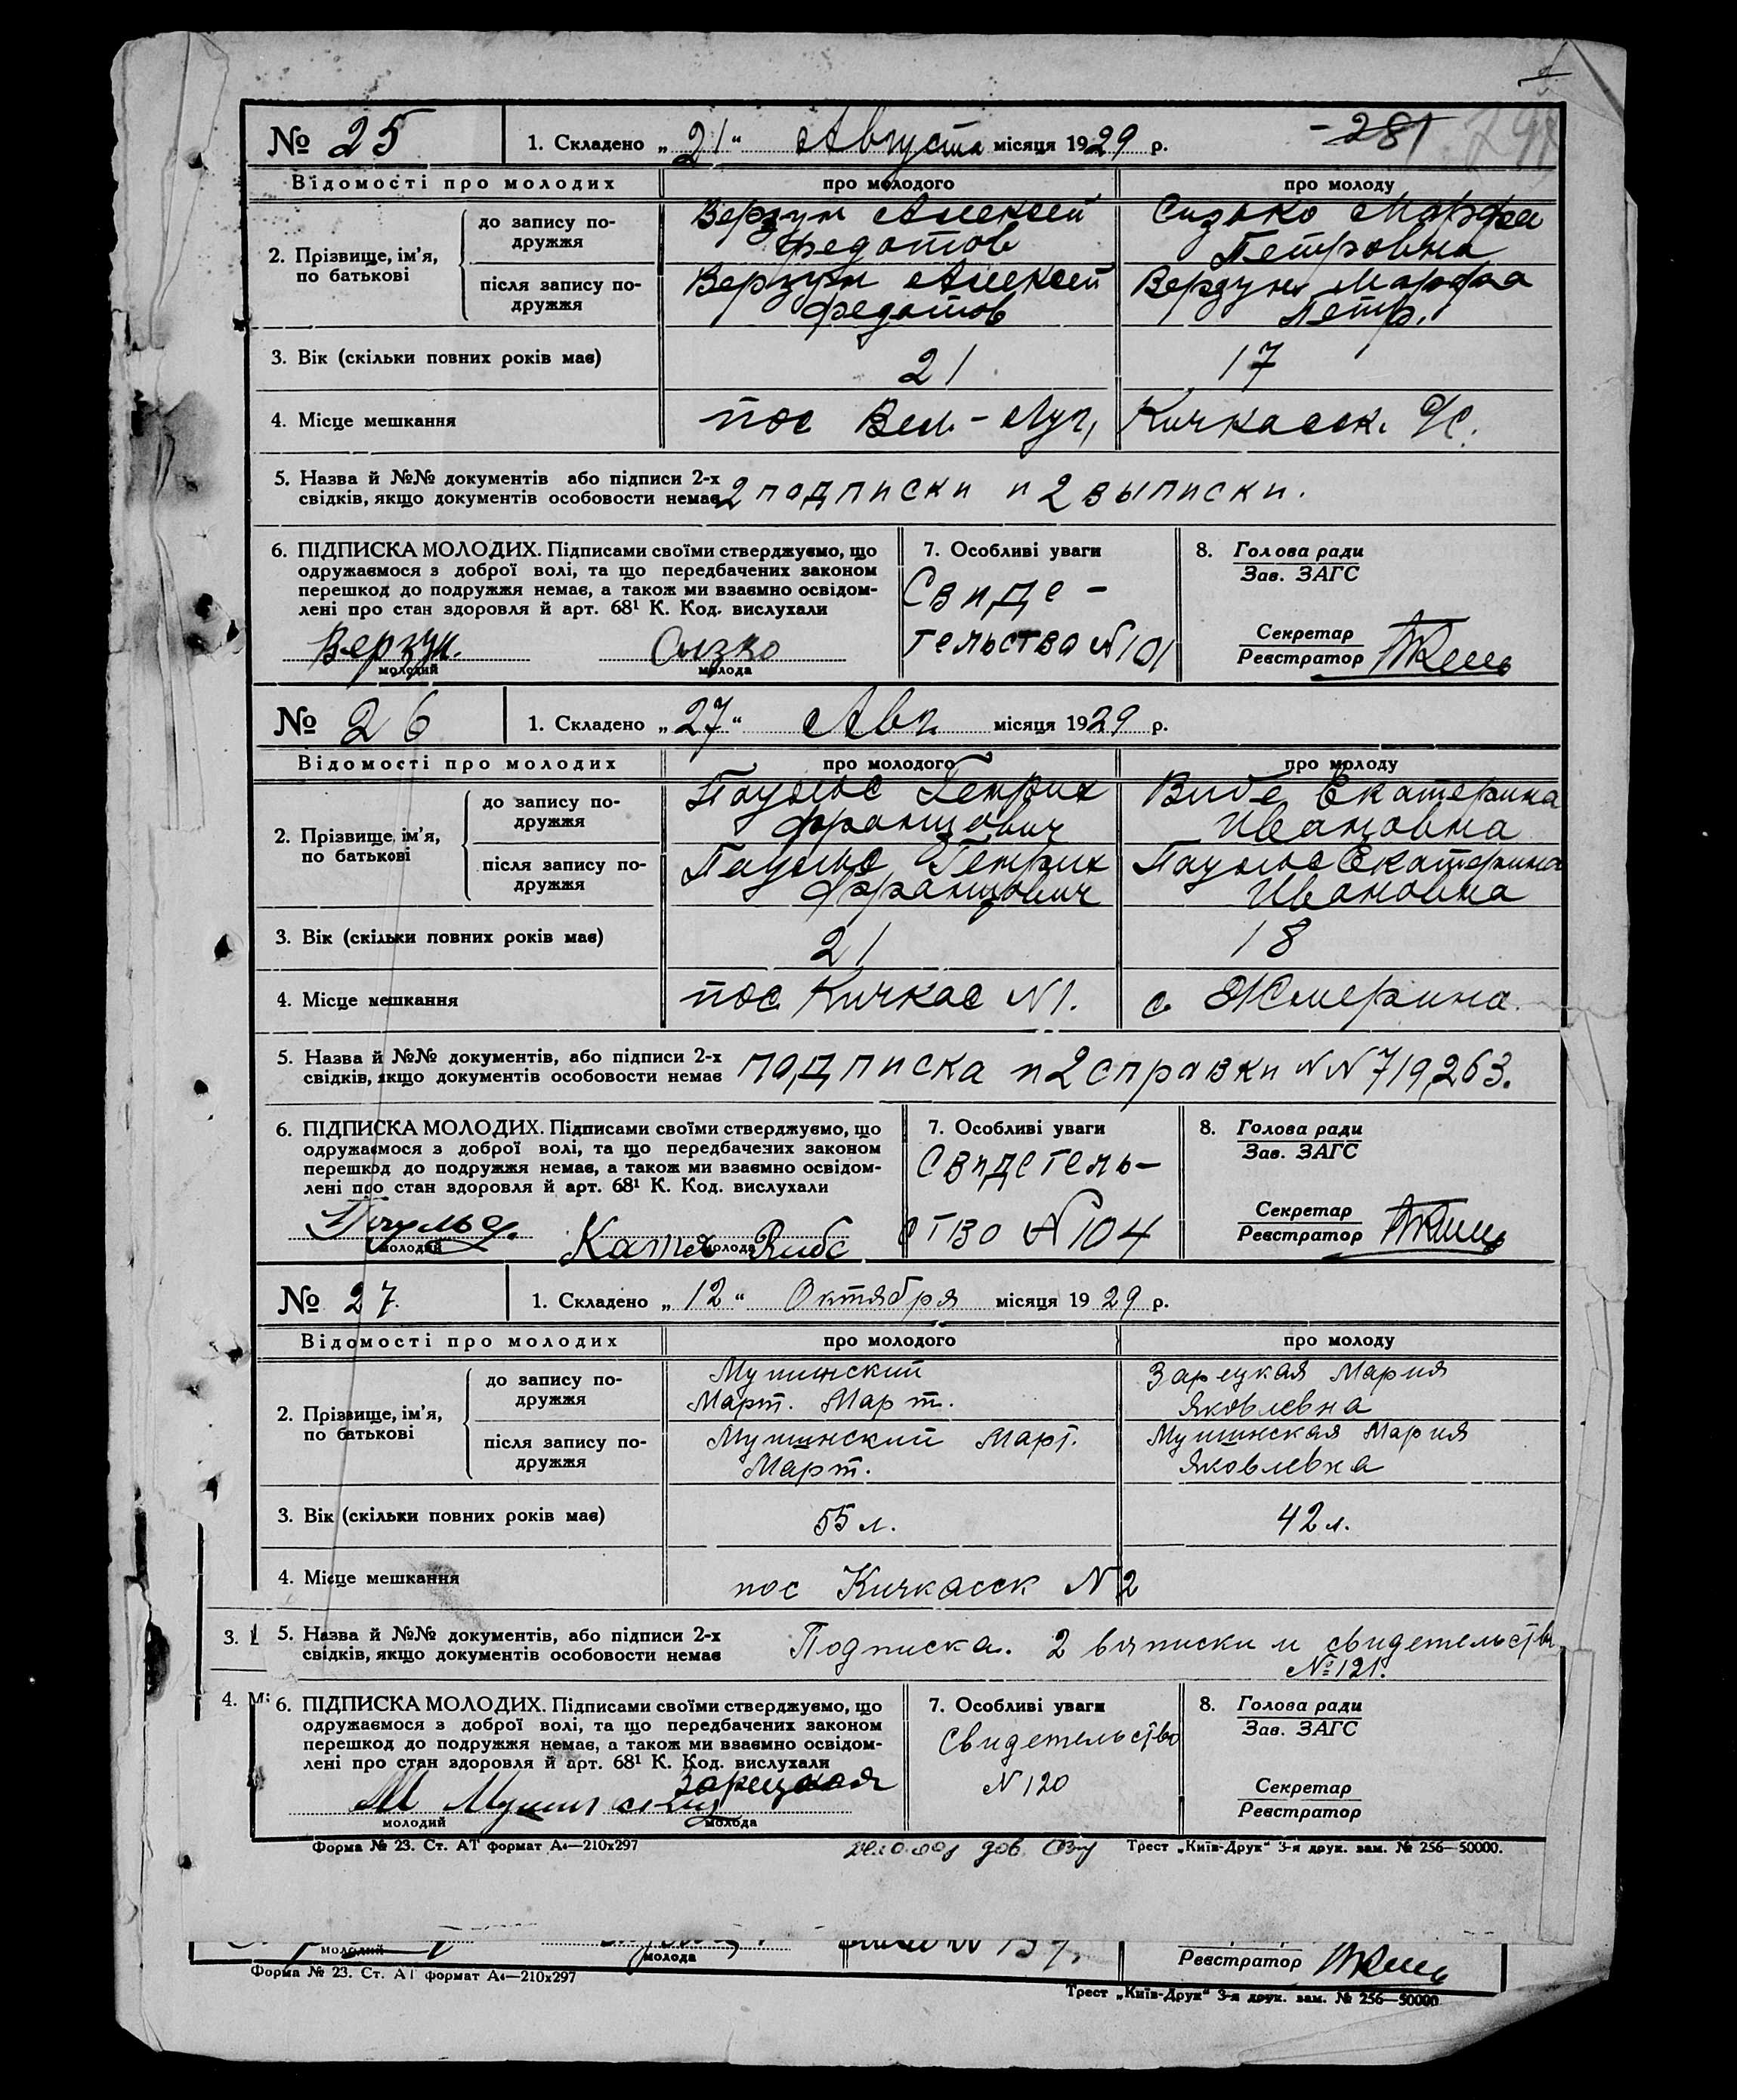 281
№ 25 1. Складено „21“ Августа місяця 1929 р.
Відомості про молодих про молодого про молоду
2. Прізвище, ім'я, по батькові
до запису по-
дружжя
Верзун Алексей
Федотов
Сизько Марфа
Петровна
після запису по-
дружжя
Верзун Алексей
Федотов
Верзун Марфа
Петр.
3. Вік (скільки повних років має) 21 17
4. Місце мешкання пос Вел.-Луг, Кичкасск. с/с.
5. Назва й №№ документів або підписи 2-х
свідків, якщо документів особовости немає 2 подписки и 2 выписки.
6. ПІДПИСКА МОЛОДИХ. Підписами своїми стверджуємо, що
одружаємося з доброї волі, та що передбачених законом
перешкод до подружжя немає, а також ми взаємно освідом-
лені про стан здоровля й арт. 68¹ К. Код. вислухали
Верзун. Сизко
молодий молода
7. Особливі уваги
Свиде-
тельства №101
8. Голова ради
Зав. ЗАГС
Секретар
Реєстратор
№ 26 1. Складено „27“ Авг місяця 1929 р.
Відомості про молодих про молодого про молоду
2. Прізвище, ім'я,
по батькові
до запису по-
дружжя
Паульс Генрих
Францович
Вибе Екатерина
Ивановна
після запису по-
дружжя
Паульс Генрих
Францович
Паульс Екатерина
Ивановна
3. Вік (скільки повних років має) 21 18
4. Місце мешкання пос. Кичкас N1. с.
5. Назва й №№ документів, або підписи 2-х
свідків, якщо документів особовости немає подписка и 2 справки NN 719,263.
6. ПІДПИСКА МОЛОДИХ. Підписами своїми стверджуємо, що
одружаємося з доброї волі, та що передбачених законом
перешкод до подружжя немає, а також ми взаємно освідом-
лені про стан здоровля й арт. 68¹ К. Код. вислухали
Паульс. Катя Вибе
молодий молода
7. Особливі уваги
свидетель-
ство №104
8. Голова ради
Зав. ЗАГС
Секретар
Реєстратор
№ 27. 1. Складено „12“ Октября місяця 1929 р.
Відомості про молодих про молодого про молоду
2. Прізвище, ім'я,
по батькові
до запису по-
дружжя
Мушинский
Март. Март.
Зарецкая Мария
Яковлевна
після запису по-
дружжя
Мушинский Март.
Март.
Мушинская Мария
Яковлевна
3. Вік (скільки повних років має) 55 л. 42 л.
4. Місце мешкання пос Кичкасск N2
3.
5. Назва й №№ документів, або підписи 2-х
свідків, якщо документів особовости немає Подписка. 2 выписки и свидетельство
№121.
4. М:
6. ПІДПИСКА МОЛОДИХ. Підписами своїми стверджуємо, що
одружаємося з доброї волі, та що передбачених законом
перешкод до подружжя немає, а також ми взаємно освідом-
лені про стан здоровля й арт. 68¹ К. Код. вислухали
М Мушинский Зарецкая
молодий молода
7. Особливі уваги
Свидетельство
N 120
8. Голова ради
Зав. ЗАГС
Секретар
Реєстратор
Форма № 23. Ст. АТ формат А₄—210х297 Трест „Київ-Друк“ 3-я друк. зам. № 256—50000.
молодий молода Реєстратор
Форма № 23. Ст. АТ формат А₄—210х297
Трест „Київ-Друк“ 3-я друк. зам. № 256—50000